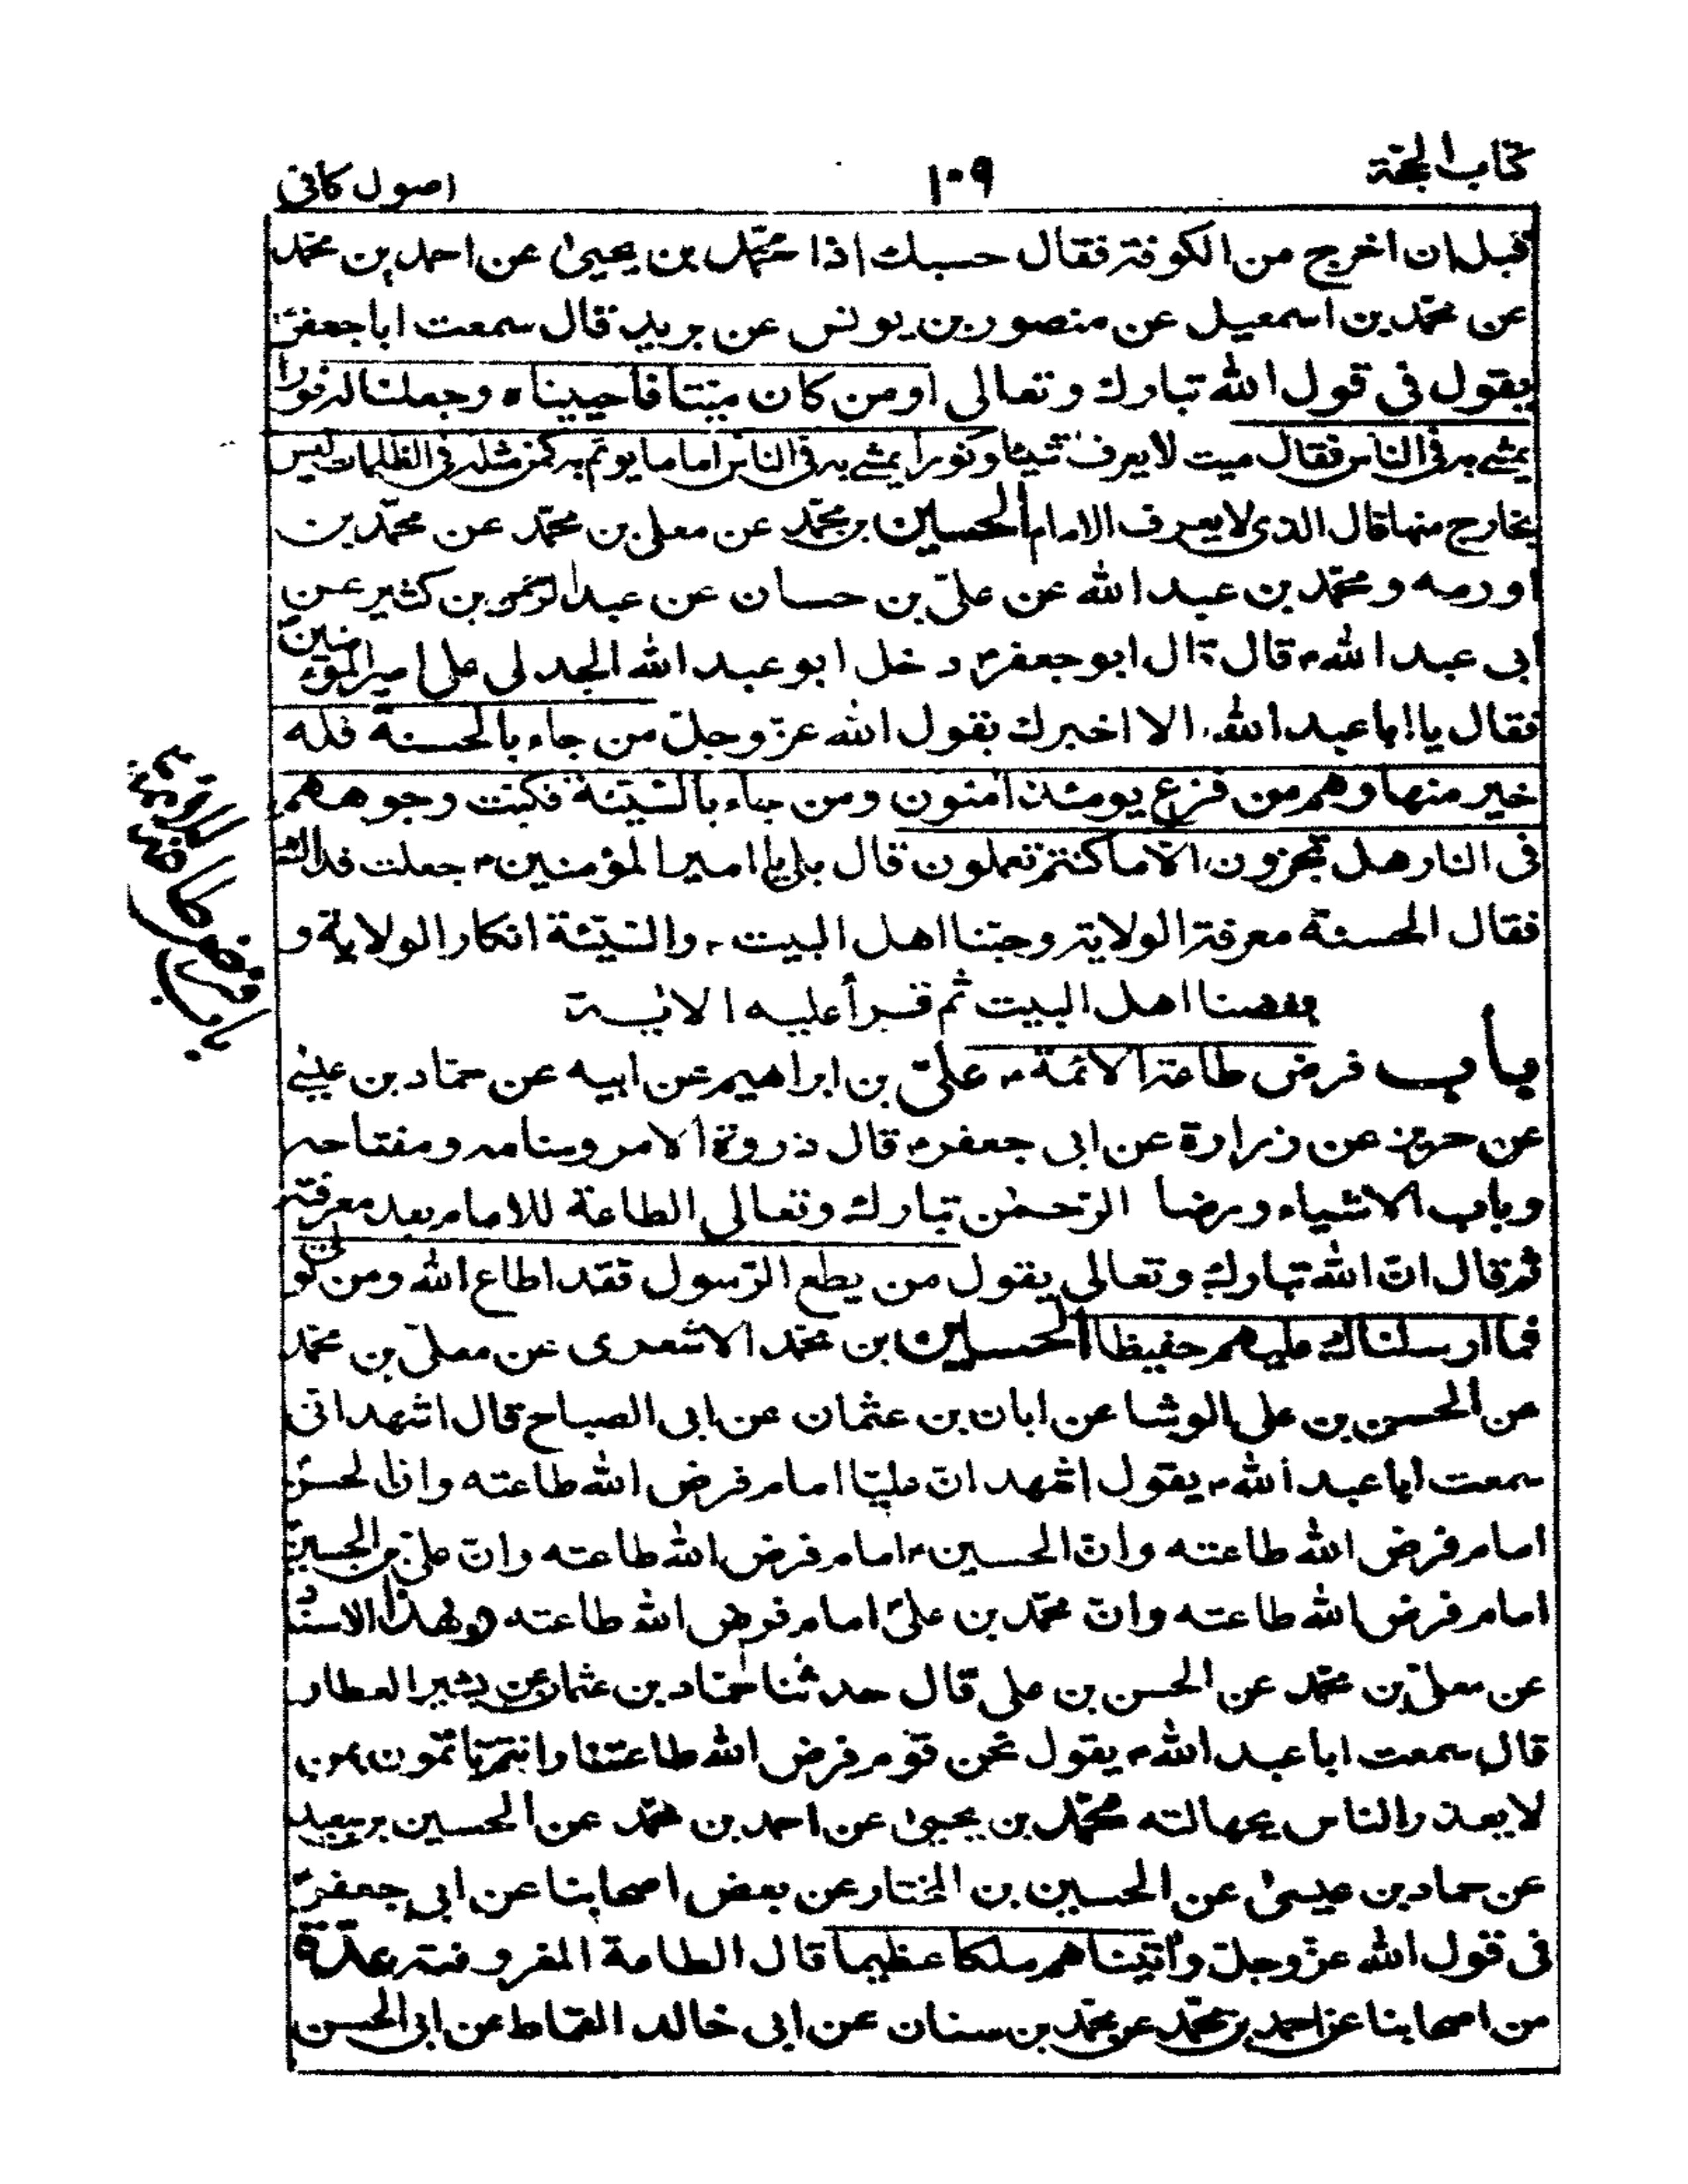 كتاب الحجة
١٠٩
اصول كافى
قبل ان اخرج من الكوفة فقال حسبك اذا محمّد بن يحيىٰ عن احمد بن محمّد
عن محمّد بن اسمعيل عن منصور بن يونس عن بريد قال سمعت ابا جعفرؑ
يقول فى قول الله تبارك وتعالى اومن كان ميّتا فاحييناه وجعلنا له نورا
يمشے به فى الناس فقال ميت لا يعرف شيئا ونورا يمشے به فى الناس اماما يوتم به كمن مثله فى الظلمات ليس
بخارج منها قال الذى لا يعرف الامام الحسين بن محمّد عن معلى بن محمّد عن محمّد بن
اورمه ومحمّد بن عبد الله عن علىّ بن حسان عن عبد الرحمن بن كثير عن
ابى عبد اللهؑ قال قال ابو جعفرؑ دخل ابو عبد الله الجدلى على امير المؤمنينؑ
فقال يا ابا عبد الله الا اخبرك بقول الله عزّ وجلّ من جاء بالحسنة فله
خير منها وهم من فزع يومئذ اٰمنون ومن جاء بالسّيّئة فكبّت وجوههم
فى النار هل تجزون الّا ما كنتم تعملون قال بلى يا امير المؤمنينؑ جعلت فداك
فقال الحسنة معرفة الولاية وحبّنا اهل البيتؑ والسّيّئة انكار الولاية و
بغضنا اهل البيت ثم قرأ عليه الاٰية
باب فرض طاعة الائمّةؑ علىّ بن ابراهيم عن ابيه عن حمّاد بن عيسٰے
عن حريز عن زرارة عن ابى جعفرؑ قال ذروة الامر وسنامه ومفتاحه
وباب الاشياء ورضا الرّحمٰن تبارك وتعالى الطاعة للامام بعد معرفته
ثم قال انّ الله تبارك وتعالى يقول من يطع الرّسول فقد اطاع الله ومن تولّى
فما ارسلناك عليهم حفيظا الحسين بن محمّد الاشعرى عن معلىّ بن محمّد
عن الحسن بن على الوشا عن ابان بن عثمان عن ابى الصباح قال اشهد انى
سمعت ابا عبد اللهؑ يقول اشهد انّ عليّا امام فرض الله طاعته وانّ الحسنؑ
امام فرض الله طاعته وانّ الحسينؑ امام فرض الله طاعته وانّ علىّ بن الحسينؑ
امام فرض الله طاعته وانّ محمّد بن علىؑ امام فرض الله طاعته وبهذا الاسناد
عن معلىّ بن محمّد عن الحسن بن على قال حدثنا حمّاد بن عثمان عن بشير العطار
قال سمعت ابا عبد اللهؑ يقول نحن قوم فرض الله طاعتنا وانتم تاتمّون بمن
لا يعذر الناس بجهالته محمّد بن يحيىٰ عن احمد بن محمّد عن الحسين بن سعيد
عن حماد بن عيسىٰ عن الحسين بن المختار عن بعض اصحابنا عن ابى جعفرؑ
فى قول الله عزّ وجلّ واٰتيناهم ملكا عظيما قال الطاعة المفروضة عدّة
من اصحابنا عن احمد بن محمّد عن محمّد بن سنان عن ابى خالد القمّاط عن ابى الحسن